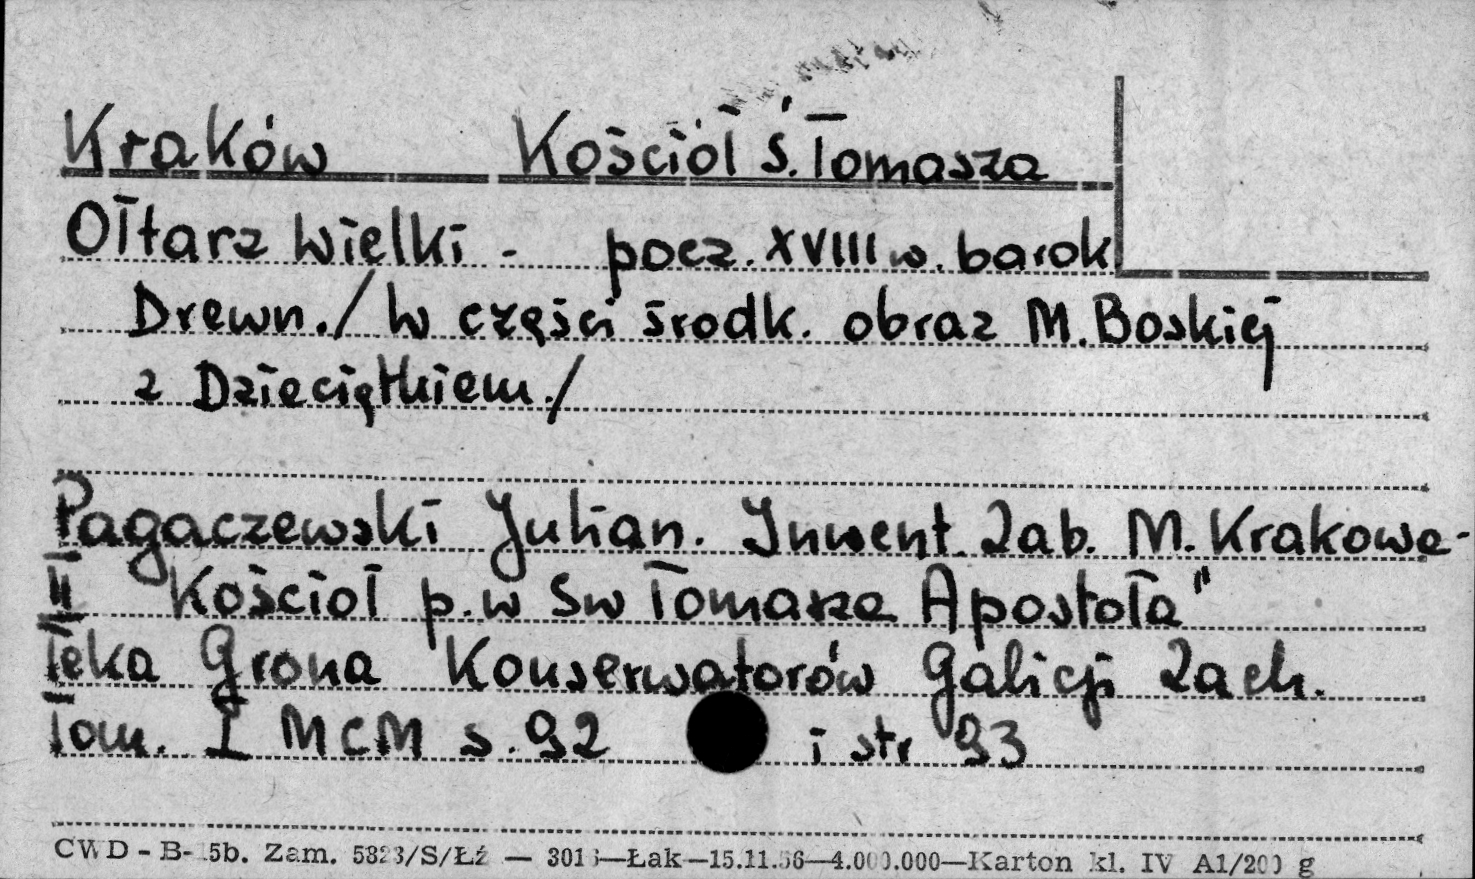 Kraków Kościół ś. Tomasza
Ołtarz wielki - pocz. XVIII w. barok
Drewn. / w części środk. obraz M. Boskiej
z Dzieciątkiem. /
Pagaczewski Julian. Inwent. Zab. M. Krakowa -
II Kościoł p.w Sw Tomasza Apostoła"
Teka Grona Konserwatorów Galicji Zach.
Tom. I MCM s. 92 i str 93
CWD - B- 5b. Zam. 5823/S/Łź — 3016—Łak—15.11.56—4.000.000—Karton kl. IV A1/200 g